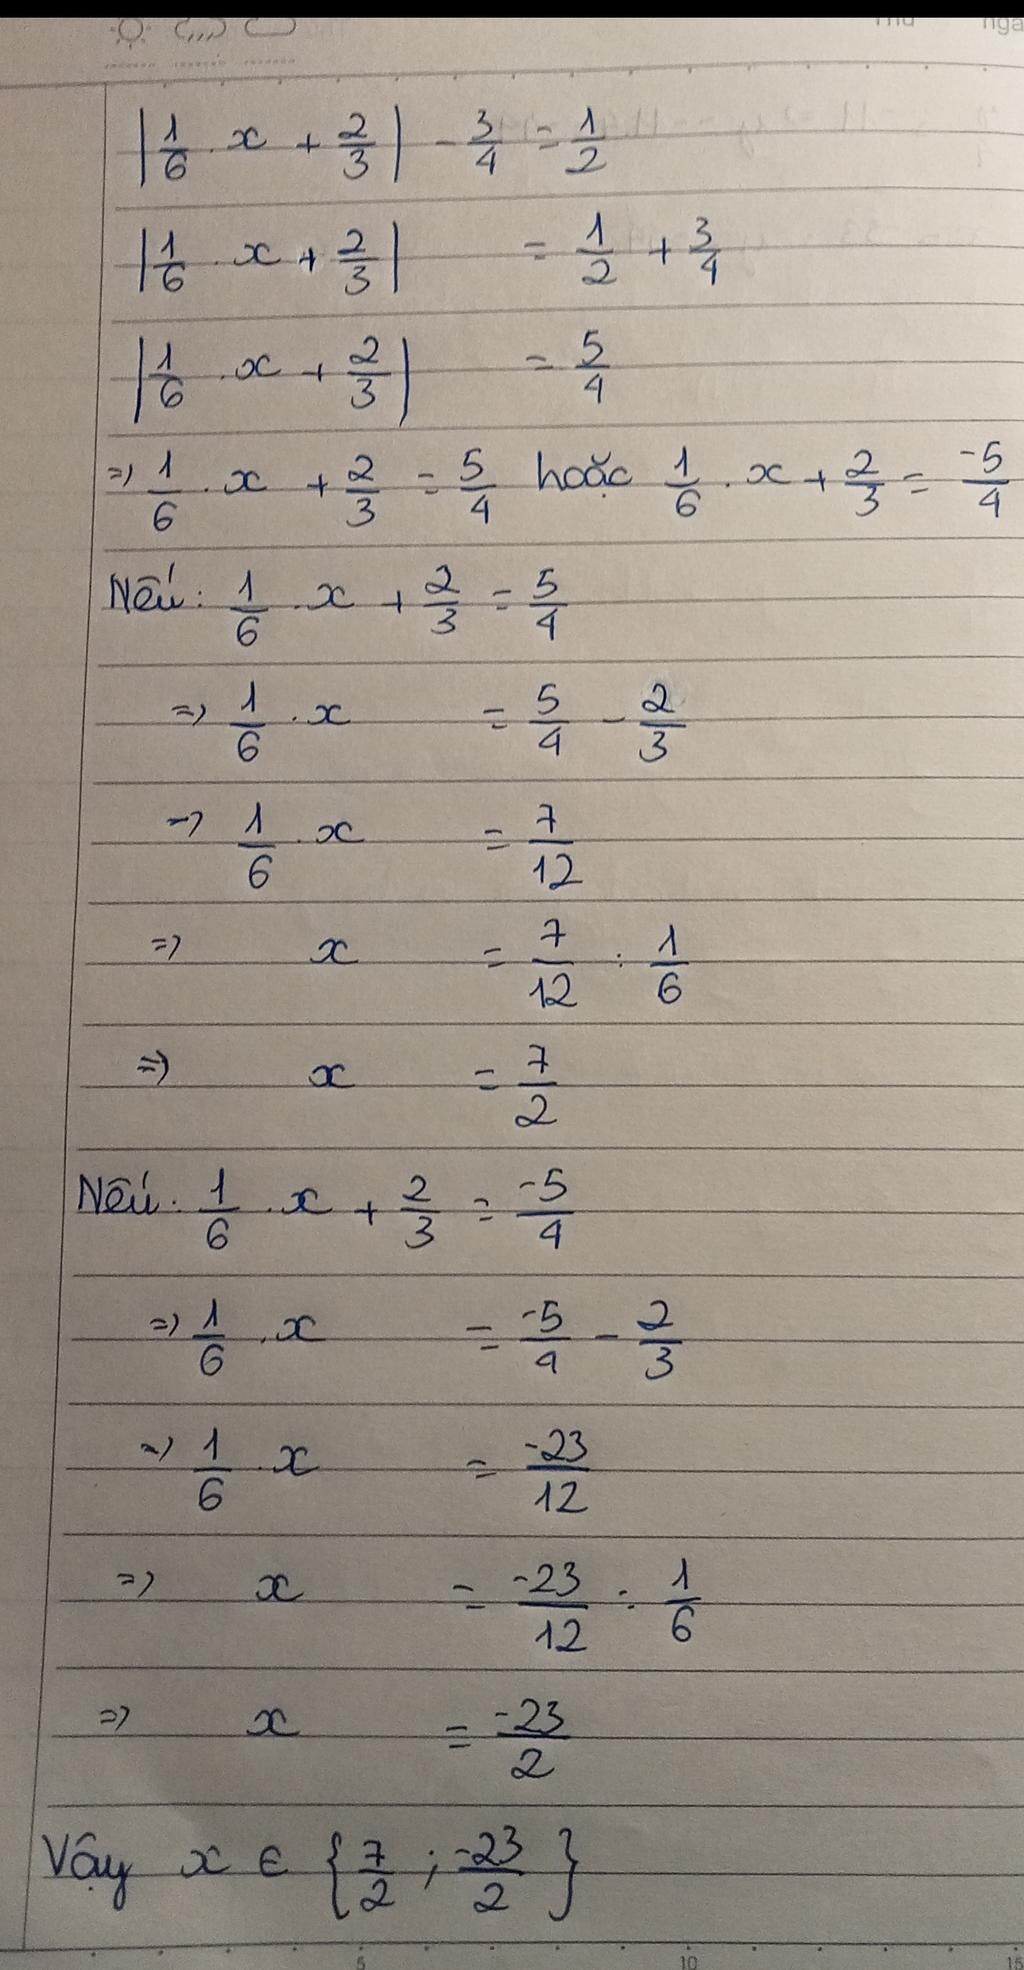 Thứ ngà
|1/6 . x + 2/3| - 3/4 = 1/2
|1/6 . x + 2/3| = 1/2 + 3/4
|1/6 . x + 2/3| = 5/4
=> 1/6 . x + 2/3 = 5/4 hoặc 1/6 . x + 2/3 = -5/4
Nếu: 1/6 . x + 2/3 = 5/4
=> 1/6 . x = 5/4 - 2/3
=> 1/6 . x = 7/12
=> x = 7/12 : 1/6
=> x = 7/2
Nếu: 1/6 . x + 2/3 = -5/4
=> 1/6 . x = -5/4 - 2/3
=> 1/6 . x = -23/12
=> x = -23/12 : 1/6
=> x = -23/2
Vậy x ∈ {7/2 ; -23/2}
5 10 15